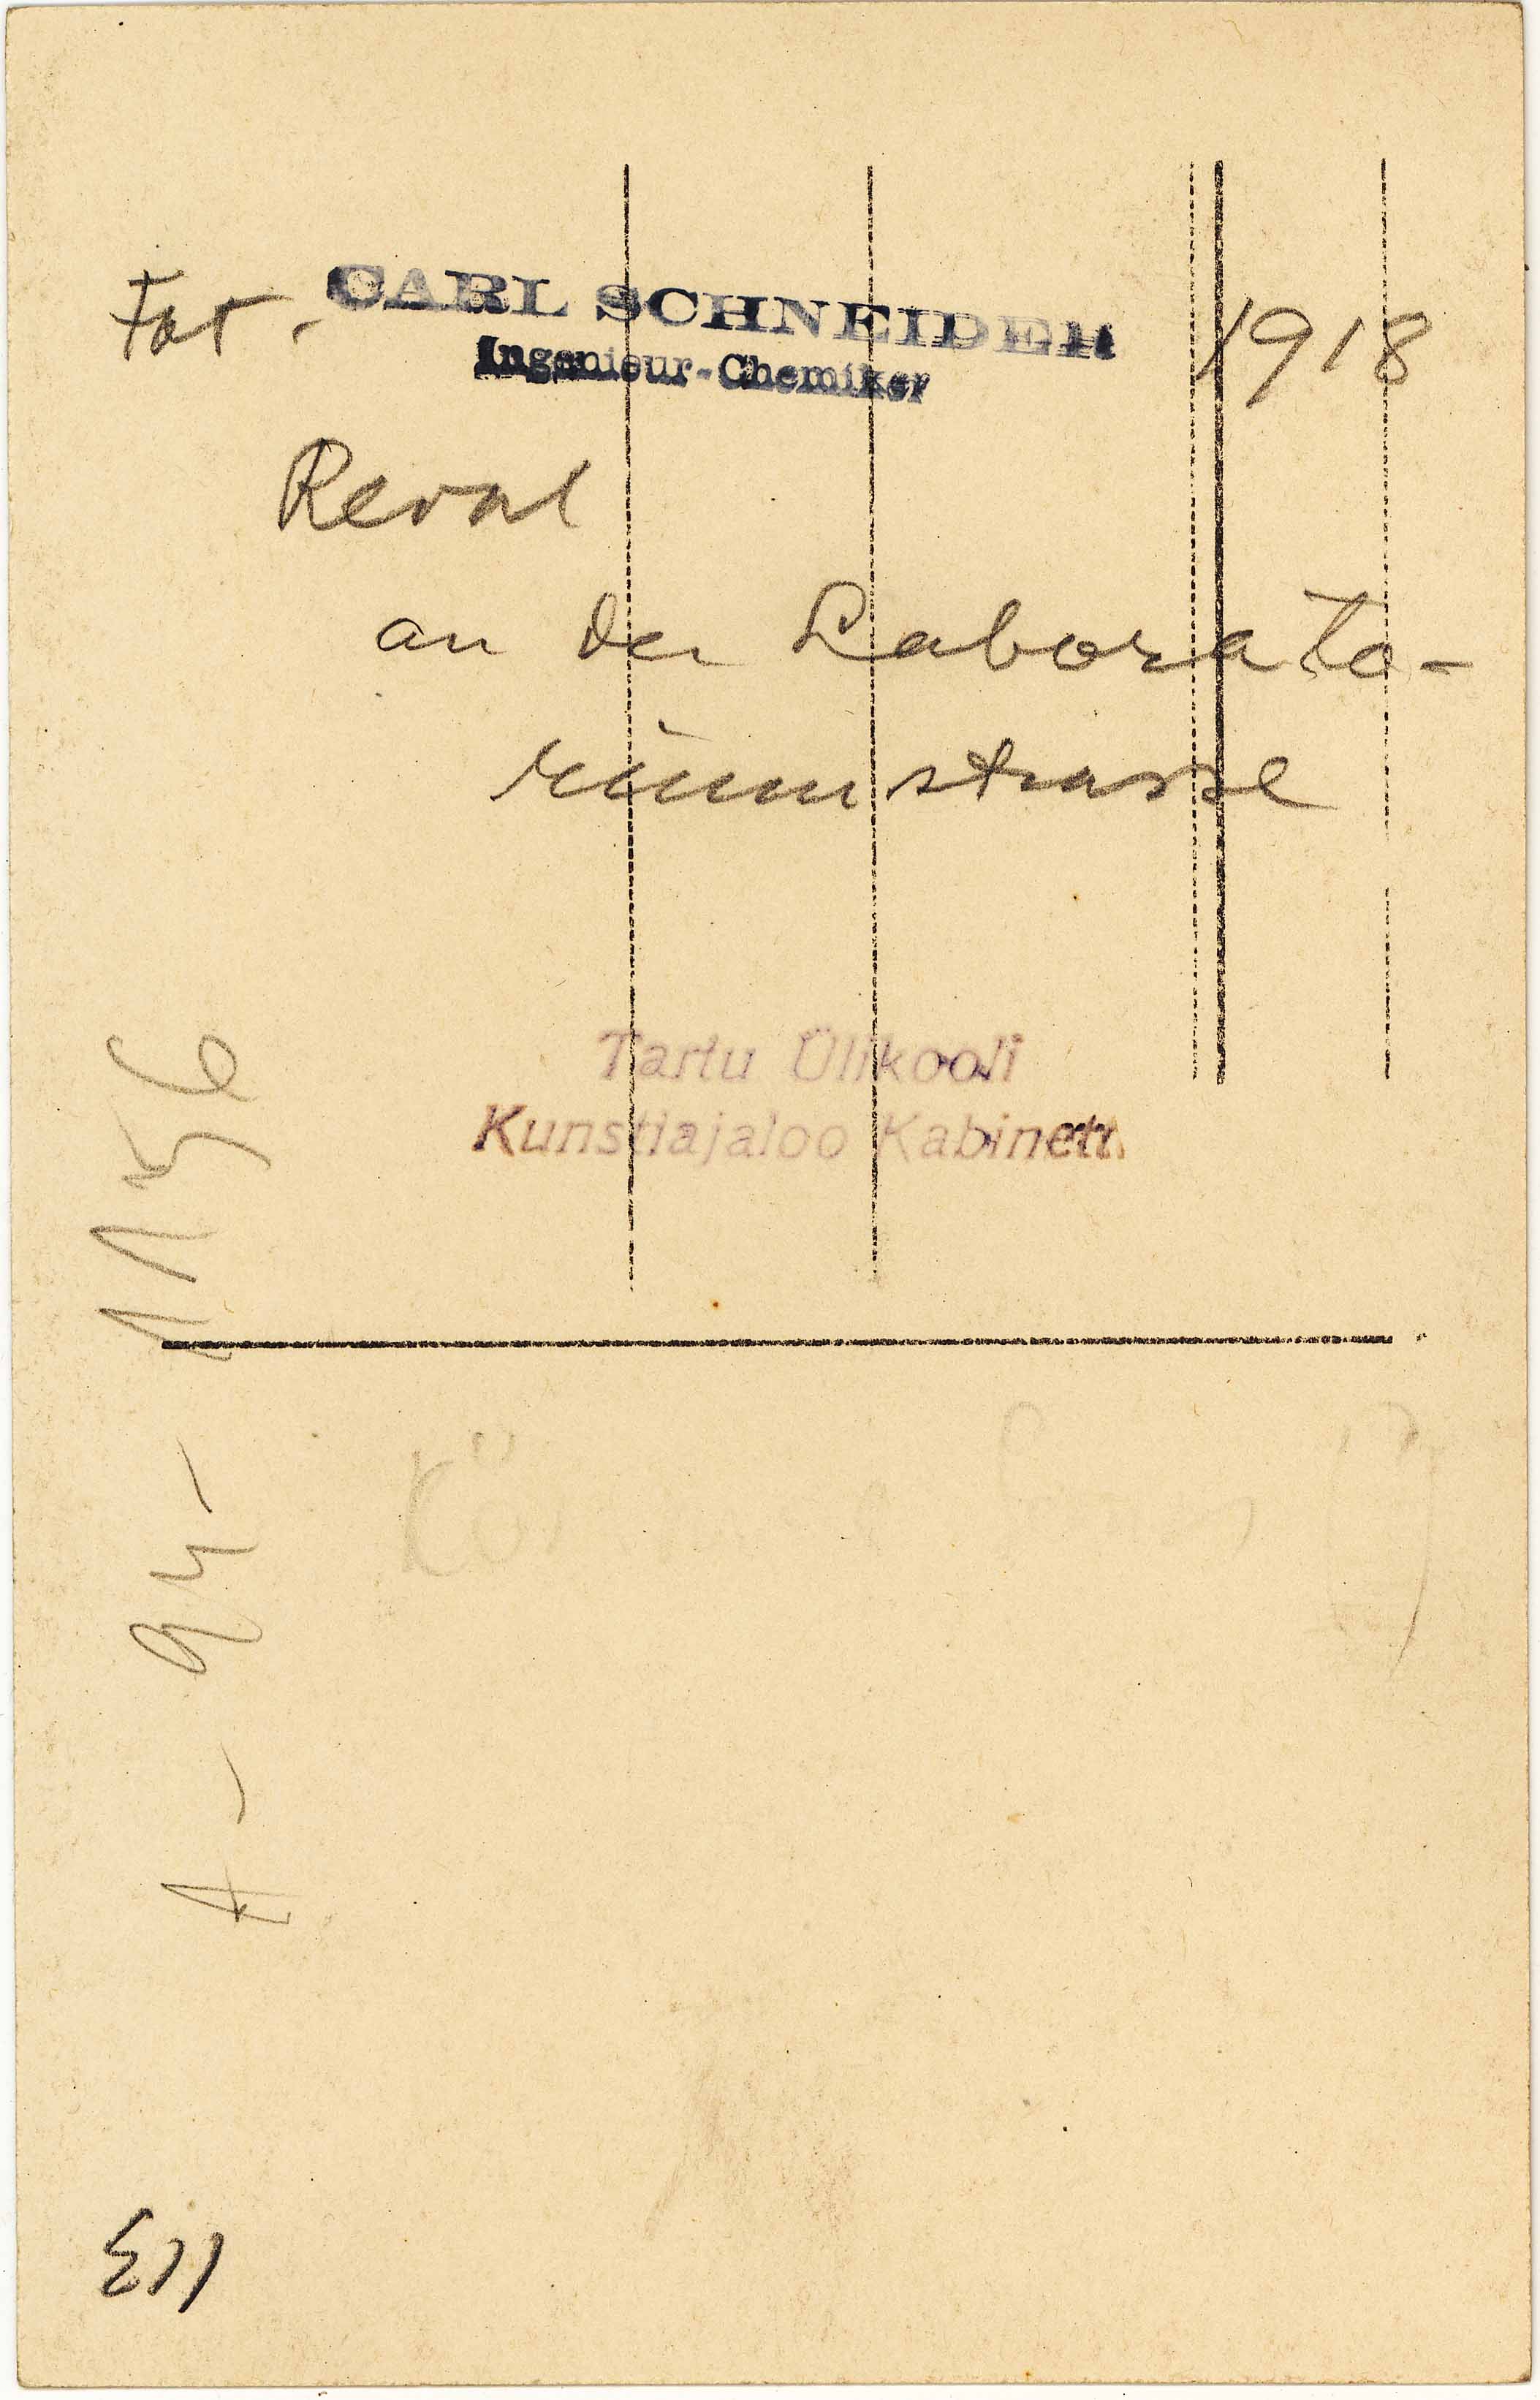 Fot. CARL SCHNEIDER 1918
Ingenieur-Chemiker
Reval
an der Laborato-
riumstrasse
Tartu Ülikooli
Kunstiajaloo Kabinett
A-94-1156
113